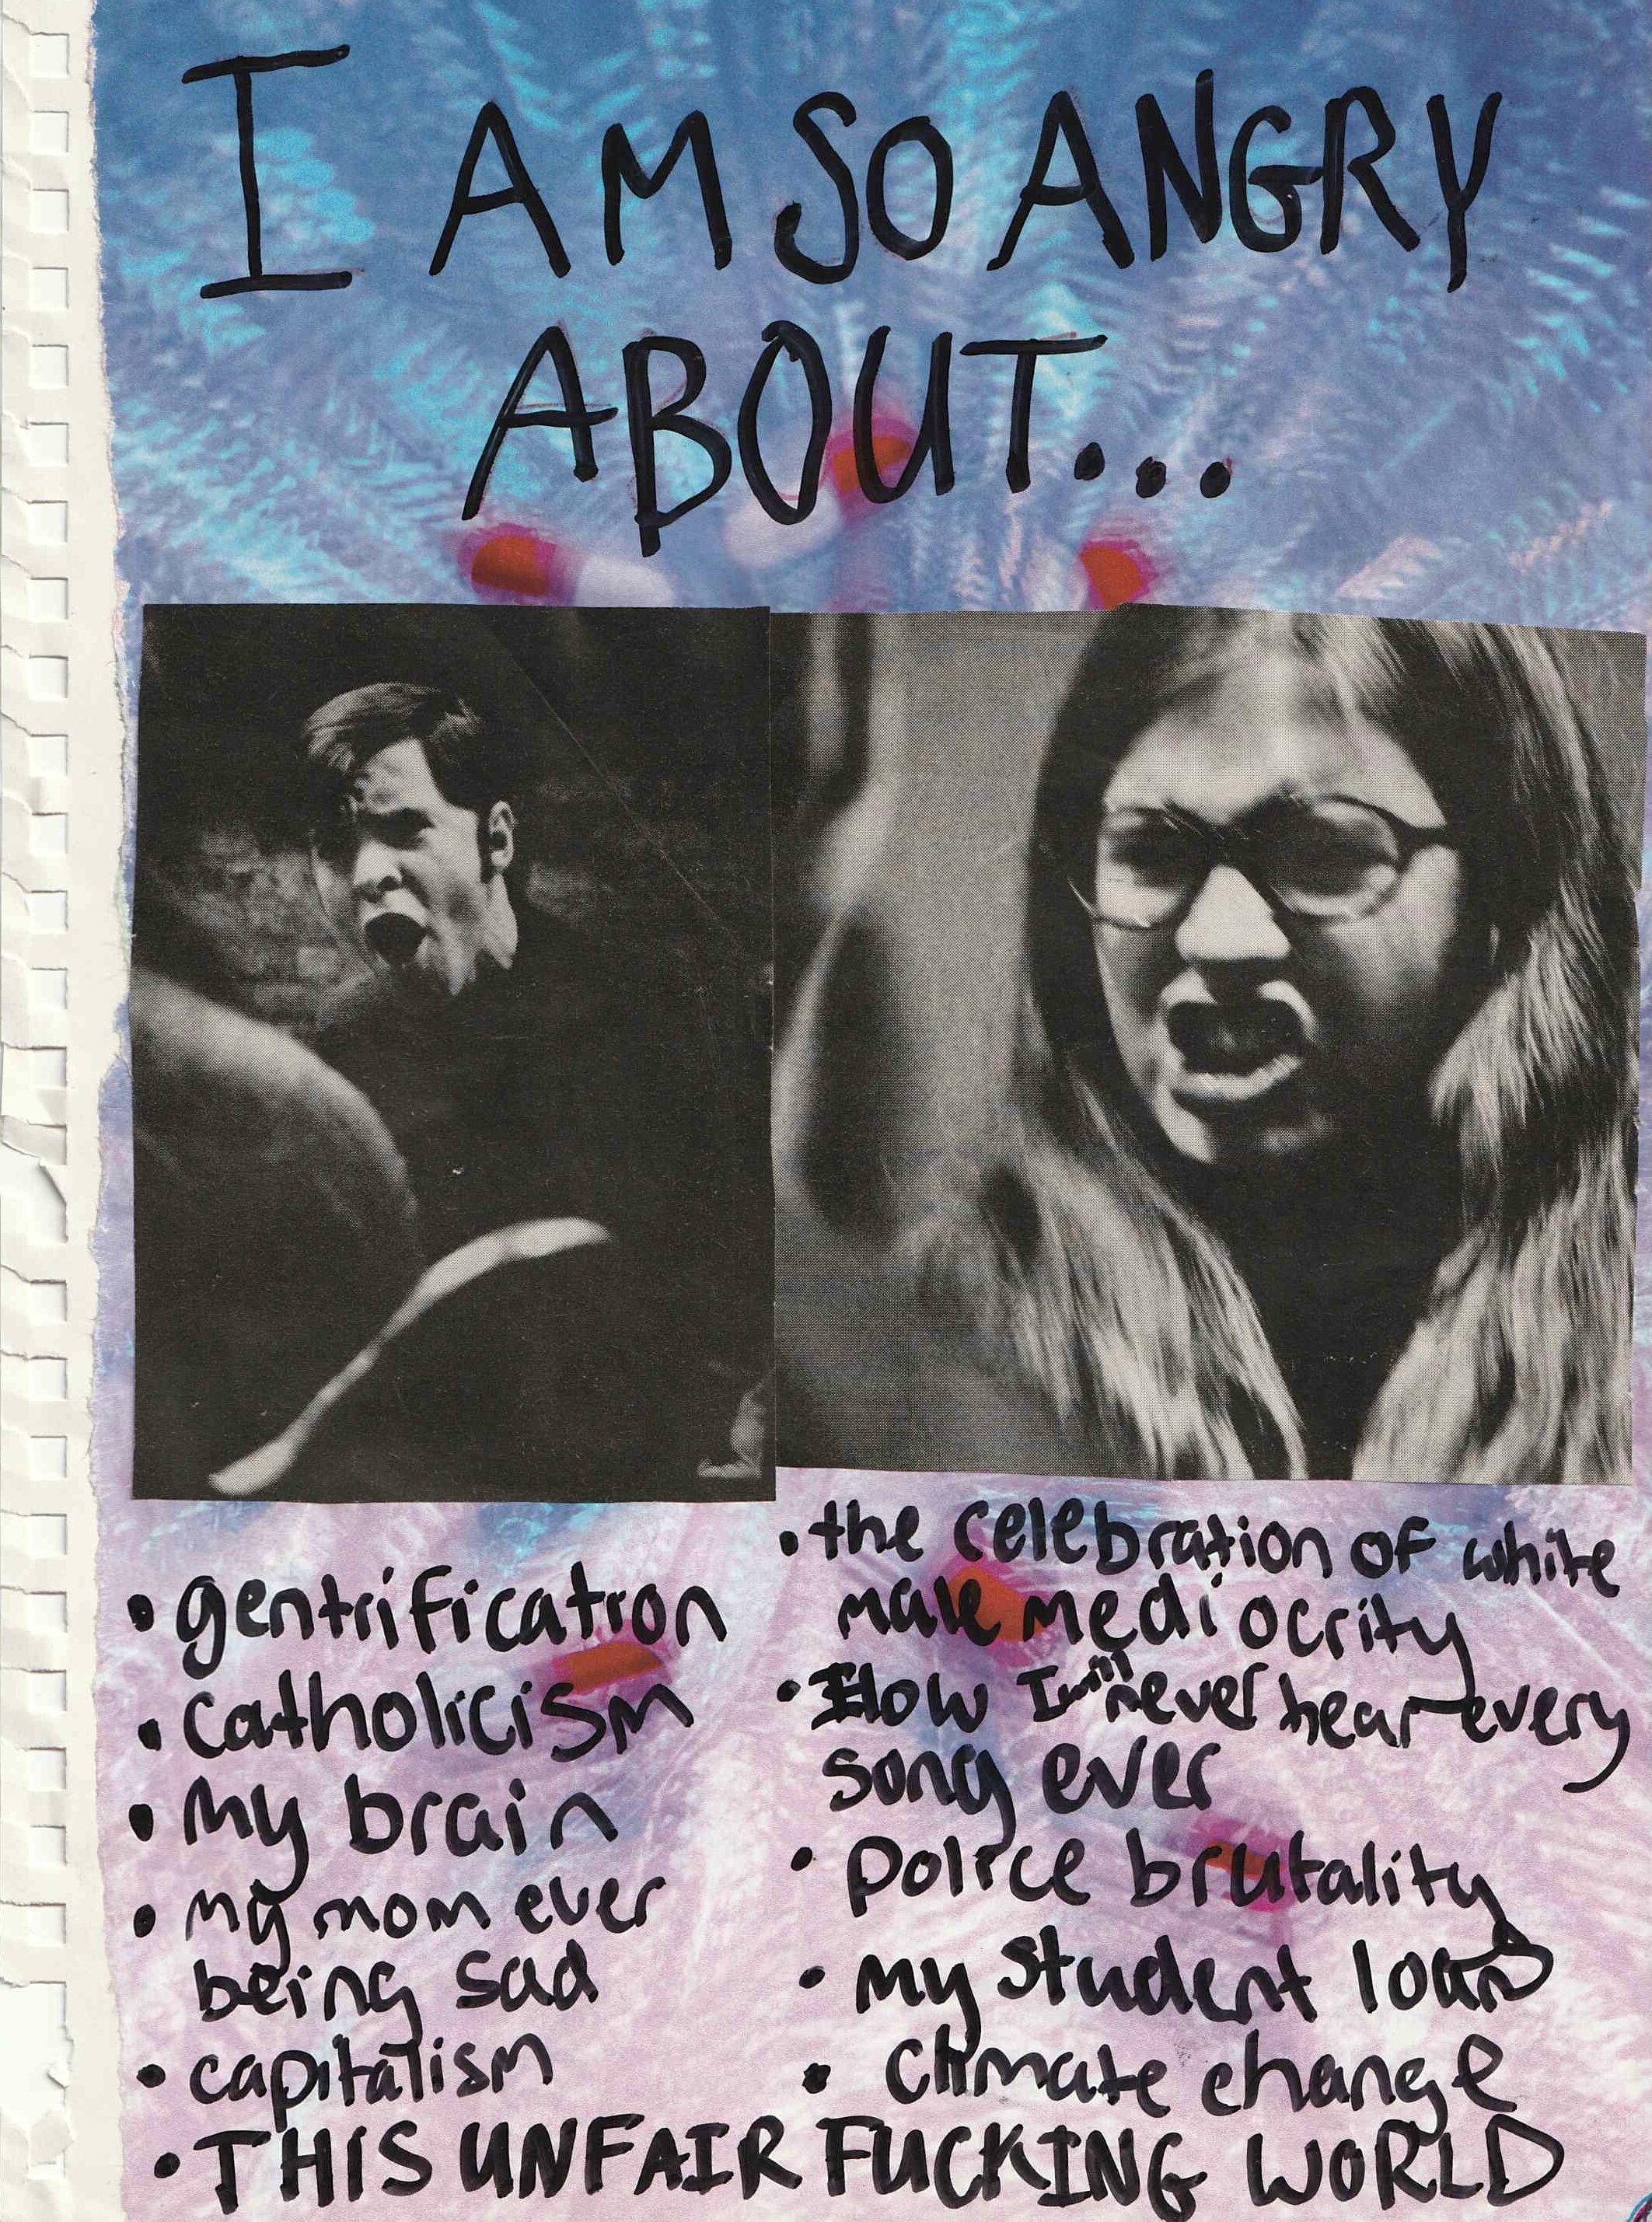 I AM SO ANGRY
ABOUT...
• gentrification
• catholicism
• my brain
• my mom ever
being sad
• capitalism
• the celebration of white
male mediocrity
• How I will never hear every
song ever
• police brutality
• my student loans
• climate change
• THIS UNFAIR FUCKING WORLD